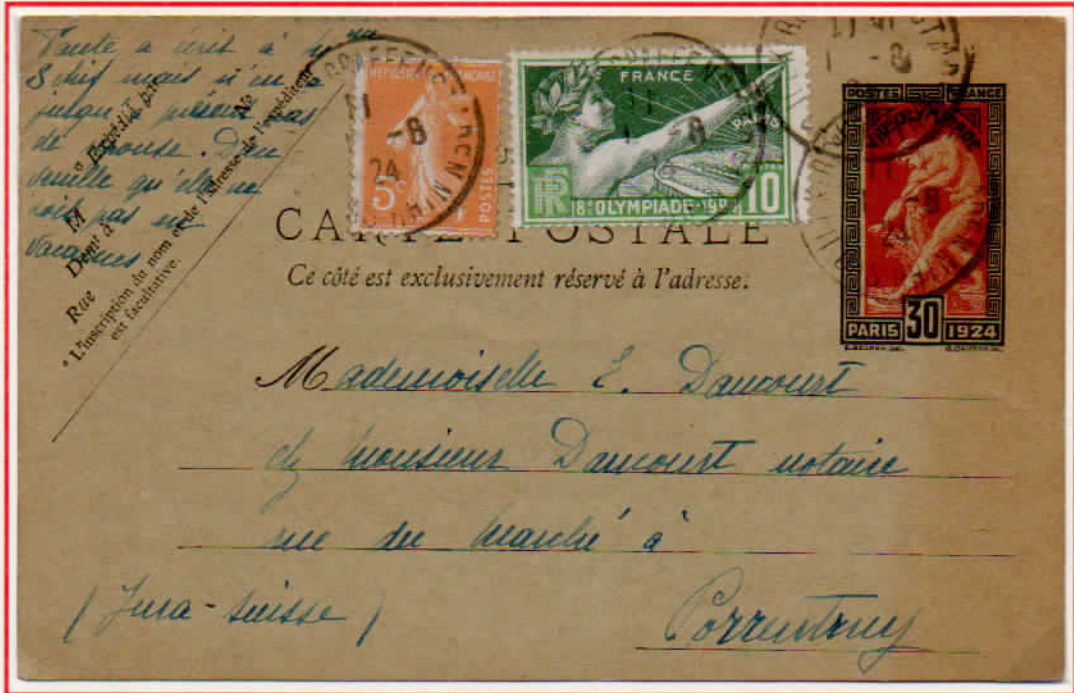 Tante a écrit à M<sup>me</sup>
Schif mais n'en a
jusqu'à présent pas
de réponse. Dieu
veuille qu'elle ne
soit pas en
vacances
* Expédié par
M
Demt à
Rue
N°
* L'inscription du nom et de l'adresse de l'expéditeur
est facultative.
REPUBLIQUE FRANÇAISE
5c
POSTES
11
-8
24
FRANCE
PARIS
RF
8e OLYMPIADE
10
POSTES FRANCE
VIIIe OLYMPIADE
PARIS 30 1924
CARTE POSTALE
Ce côté est exclusivement réservé à l'adresse.
Mademoiselle E. Daucourt
chz monsieur Daucourt notaire
rue du marché à
Porrentruy
(Jura-Suisse)